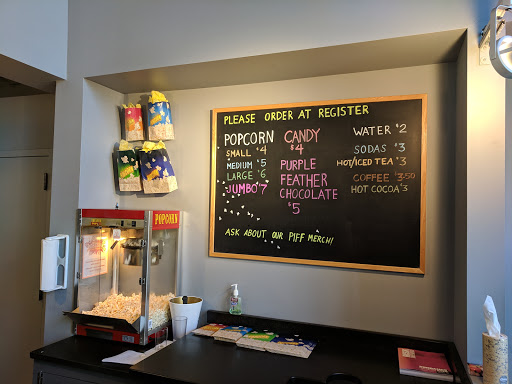 PLEASE ORDER AT REGISTER
POPCORN
SMALL $4
MEDIUM $5
LARGE $6
JUMBO $7
CANDY
$4
PURPLE
FEATHER
CHOCOLATE
$5
WATER $2
SODAS $3
HOT/ICED TEA $3
COFFEE $3.50
HOT COCOA $3
ASK ABOUT OUR PIFF MERCH!
POPCORN